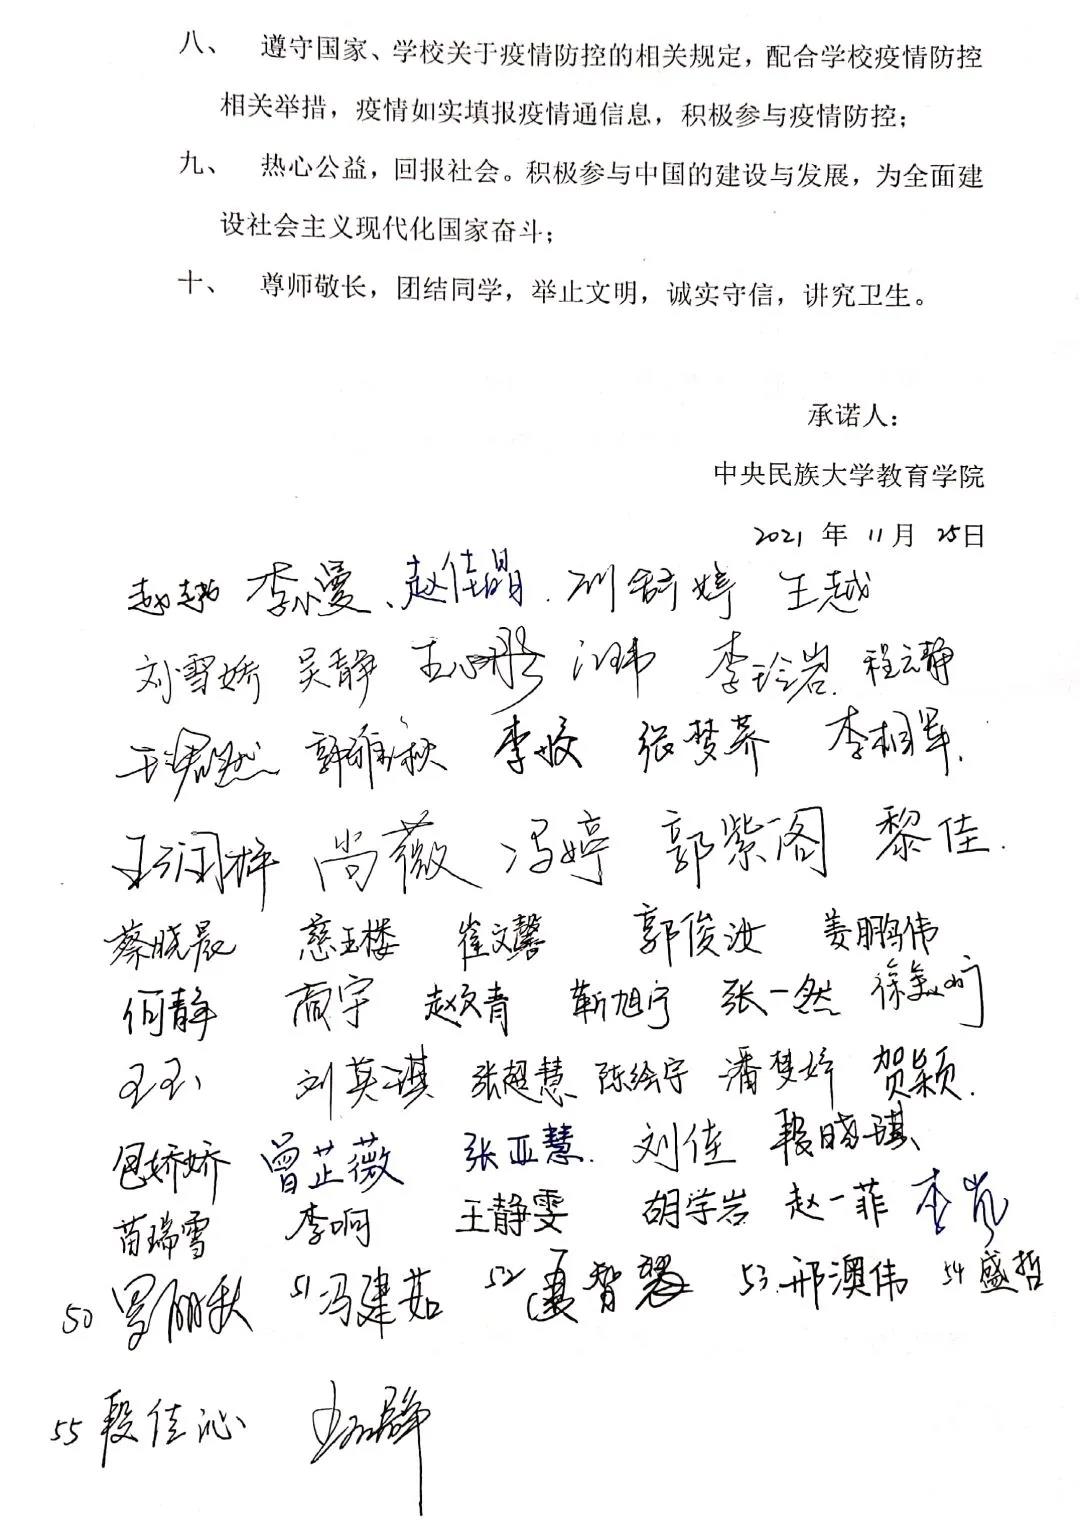 八、 遵守国家、学校关于疫情防控的相关规定，配合学校疫情防控
相关举措，疫情如实填报疫情通信息，积极参与疫情防控；
九、 热心公益，回报社会。积极参与中国的建设与发展，为全面建
设社会主义现代化国家奋斗；
十、 尊师敬长，团结同学，举止文明，诚实守信，讲究卫生。
承诺人：
中央民族大学教育学院
2021 年 11 月 25日
赵越 李小曼、赵佳晶. 王越
刘雪娇 吴静 李玲岩. 程云静
李姣 张梦荞 李相军.
尚薇 冯婷 郭紫阁 黎佳.
蔡晓晨 慈玉楼 崔文馨 郭俊汝 姜鹏伟
何静 商宇 靳旭宁 张一然
王玉 刘英淇 张超慧 陈绘宇 潘梦婷 贺颖.
包娇娇 曾芷薇 张亚慧. 刘佳 段晓琪
苗瑞雪 李啊 王静雯 胡学岩 赵一菲
50 罗丽秋 51 冯建茹 52 夏智慧 53. 邢澳伟 54 盛哲
55 段佳沁